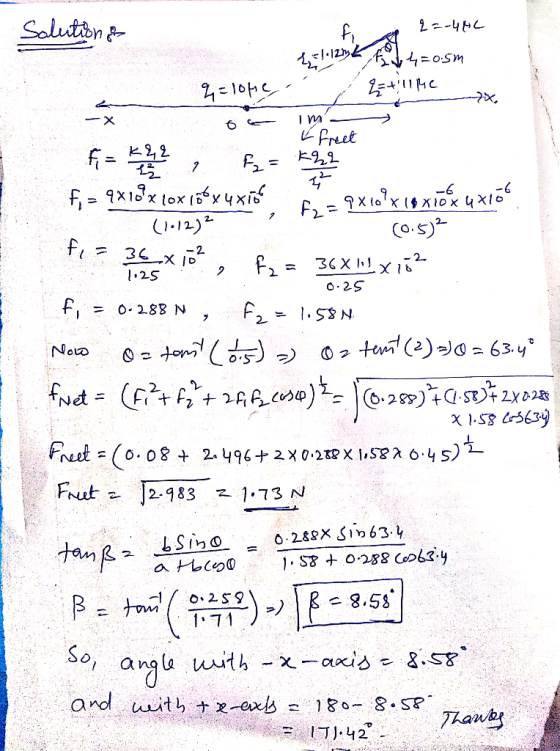 Solution:-
f₁ q=-4μC
r₂=1.12m θ f₂ r₁=0.5m
q₁=10μC q₂=+11μC
-x 0 1m x
Fnet
F₁ = Kq₁q/r₂² , F₂ = Kq₂q/r₁²
F₁ = 9×10⁹×10×10⁻⁶×4×10⁻⁶/(1.12)² , F₂ = 9×10⁹×11×10⁻⁶×4×10⁻⁶/(0.5)²
F₁ = 36/1.25 ×10⁻² , F₂ = 36×1.1/0.25 ×10⁻²
F₁ = 0.288 N , F₂ = 1.58 N
Now θ = tan⁻¹(1/0.5) => θ = tan⁻¹(2) => θ = 63.4°
FNet = (F₁²+F₂²+2F₁F₂cosθ)^½ = √((0.288)²+(1.58)²+2×0.288
×1.58 cos63.4)
Fnet = (0.08 + 2.496 + 2×0.288×1.58×0.45)^½
Fnet = √2.983 = 1.73 N
tanβ = bSinθ/a+bcosθ = 0.288×Sin63.4/1.58+0.288 Cos63.4
β = tan⁻¹(0.258/1.71) => β = 8.58°
So, angle with -x-axis = 8.58°
and with +x-axis = 180-8.58°
= 171.42°- Thanks